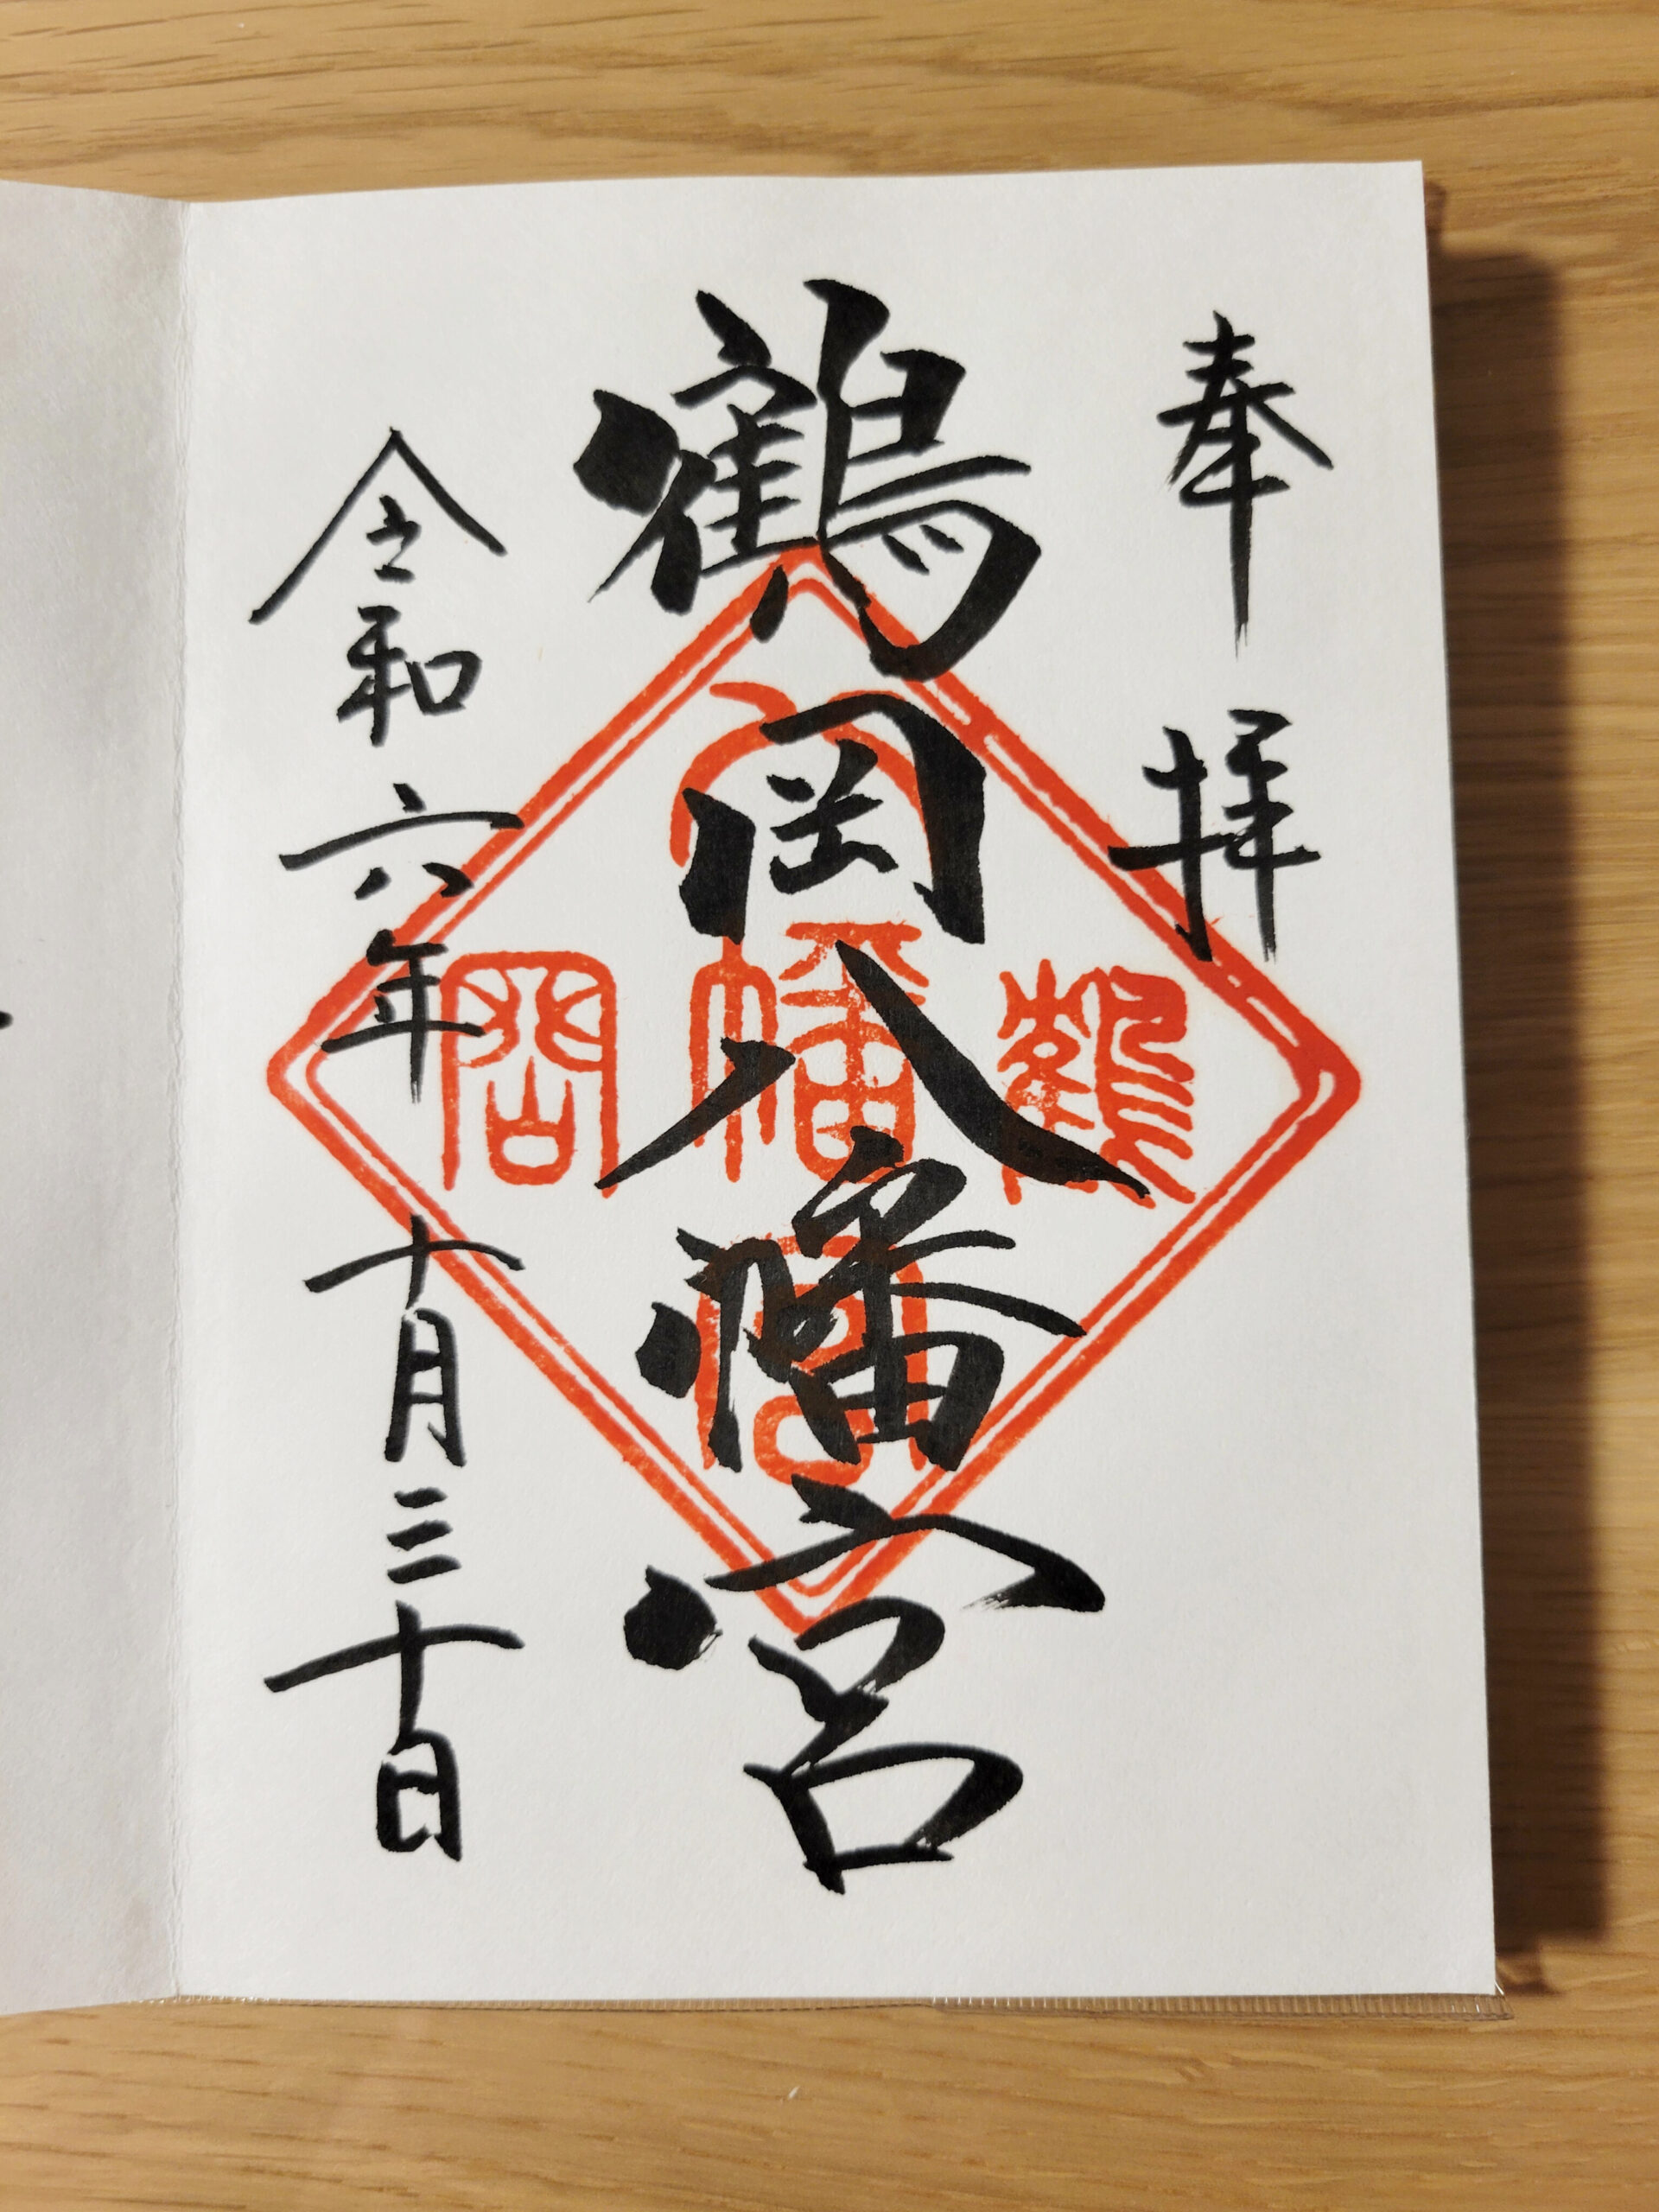 奉拝
鶴岡八幡宮
令和六年十月三十日
鶴
八幡宮
岡